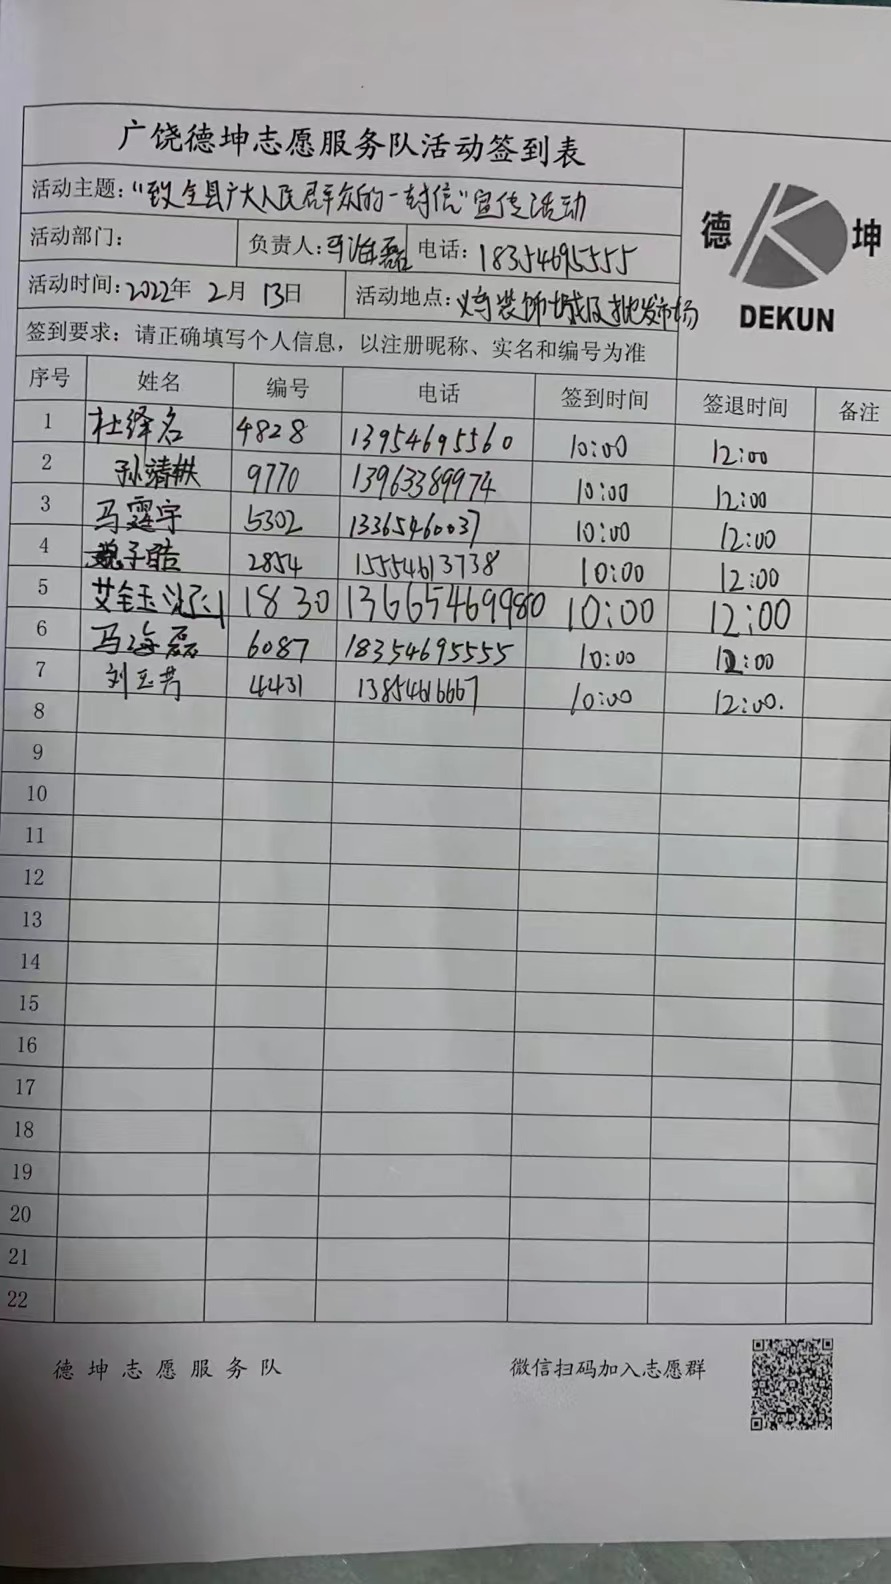 广饶德坤志愿服务队活动签到表
活动主题：“致全县广大人民群众的一封信”宣传活动
德 坤
DEKUN
活动部门： 负责人：马海磊 电话：18354695555
活动时间：2022年 2月 13日 活动地点： 装饰城及批发市场
签到要求：请正确填写个人信息，以注册昵称、实名和编号为准
序号 姓名 编号 电话 签到时间 签退时间 备注
1 杜绎名 4828 13954695560 10:00 12:00
2 孙靖轶 9770 13963389974 10:00 12:00
3 马霆宇 5302 13365460037 10:00 12:00
4 魏子皓 2854 15554613738 10:00 12:00
5 艾金玉 1830 13665469980 10:00 12:00
6 马海磊 6087 18354695555 10:00 12:00
7 刘玉芹 4431 13854616667 10:00 12:00.
8
9
10
11
12
13
14
15
16
17
18
19
20
21
22
德坤志愿服务队 微信扫码加入志愿群